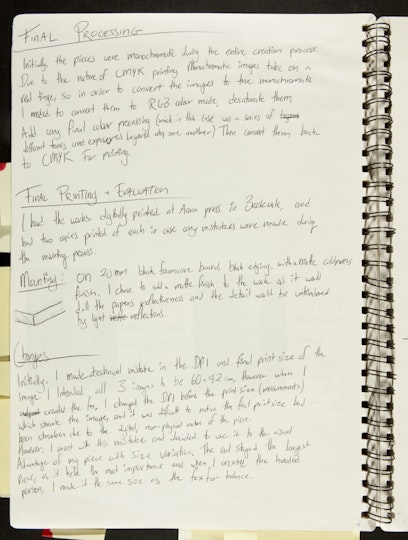 FINAL PROCESSING
Initially, the pieces were monochromatic during the entire creation process.
Due to the nature of CMYK printing Monochromatic images take on a
red tinge, so in order to convert the images to true monochromatic
I needed to convert them to RGB colour mode, desaturate them,
Add any final colour processing (which in this case was a series of
different tones and exposures layered atop one another) Then convert them back
to CMYK for printing.
Final Printing + Evaluation
I had the works digitally printed at press in and
had two copies printed of each in case any mistakes were made during
the mounting process.
Mounting: On 20mm black foamcore board, black edging, with a matte
finish. I chose to add a matte finish to the work as it would
dull the papers reflectiveness and the detail would be unhindered
by light reflections.
Changes
Initially, I made a technical mistake in the DPI and final print size of the
Image. I intended all 3 images to be 60x42cm, however when I
created the fox, I changed the DPI before the print size (measurements)
which shrunk the image, and it was difficult to notice the final print size had
been shrunken due to the digital, non-physical nature of the piece.
However, I went with this mistake and decided to use it to the visual
Advantage of my piece with size variation. The owl stayed the largest
piece, as it held the most importance and when I created the hooded
person, I made it the same size as the fox for balance.